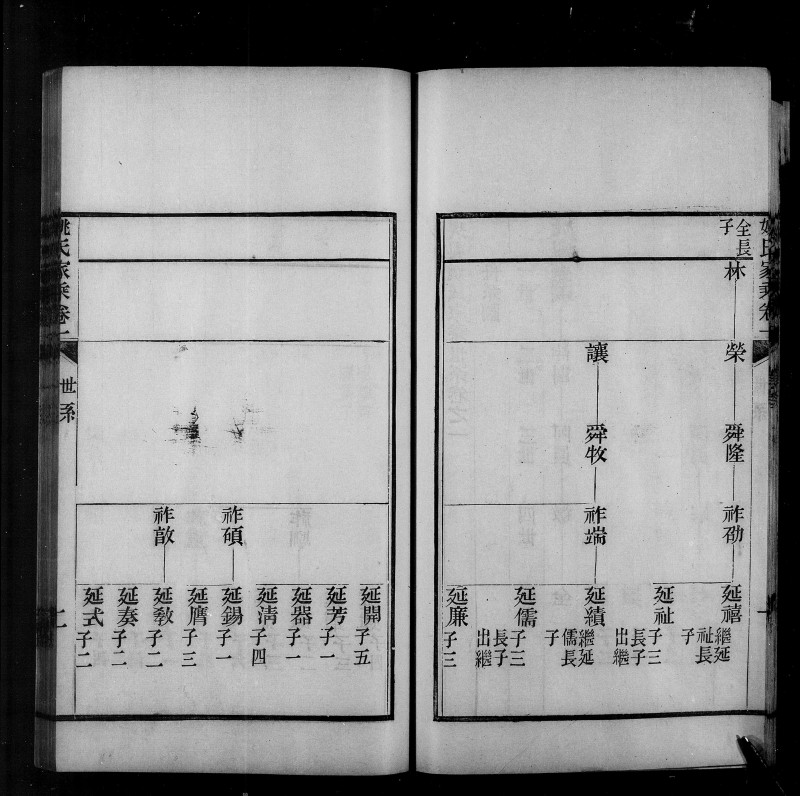 姚氏家乘卷一
全長子
林
榮
舜隆
祚劭
延禧
繼延祉長子
延祉
子三長子出繼
讓
舜牧
祚端
延績
繼延儒長子
延儒
子三長子出繼
延廉
子三
延開
子五
延芳
子一
延器
子一
延淸
子四
祚碩
延錫
子一
延膺
子三
祚敔
延斆
子二
延奏
子二
延式
子二
姚氏家乘卷一
世系
二